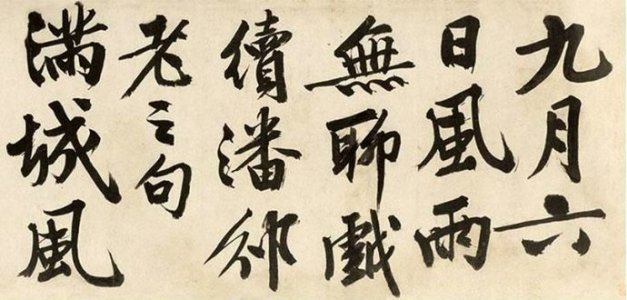 九月六
日風雨
無聊戲
續潘邠
老之句
滿城風